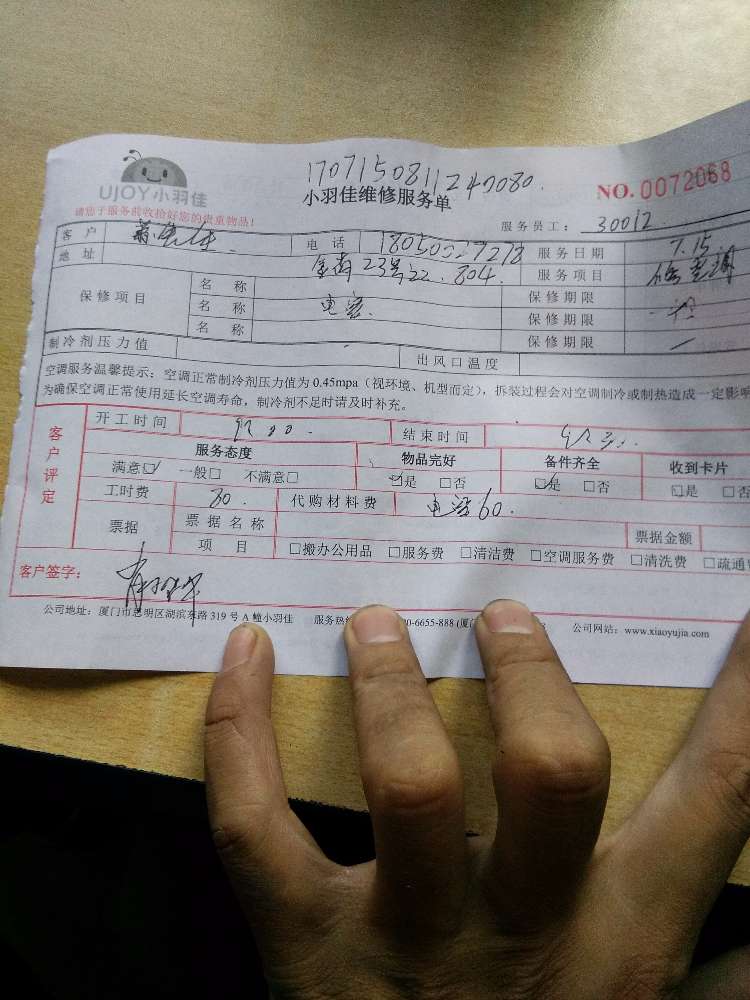 UJOY小羽佳
1707150811240080.
小羽佳维修服务单
NO.0072068
请您于服务前收拾好您的贵重物品!
服务员工: 30012
客户 电话 18050027278 服务日期 7.15
地址 23号22.804. 服务项目
保修项目 名称 保修期限
名称 电容. 保修期限 一
名称 保修期限 一
制冷剂压力值 出风口温度
空调服务温馨提示:空调正常制冷剂压力值为0.45mpa(视环境、机型而定),拆装过程会对空调制冷或制热造成一定影响
为确保空调正常使用延长空调寿命,制冷剂不足时请及时补充。
客户评定
开工时间 结束时间
服务态度 物品完好 备件齐全 收到卡片
满意☑ 一般□ 不满意□ ☑是 □否 ☑是 □否 □是 □否
工时费 30. 代购材料费 电容60.
票据 票据名称 票据金额
项目 □搬办公用品 □服务费 □清洁费 □空调服务费 □清洗费 □疏通
客户签字:
公司地址:厦门市思明区湖滨东路319号A幢小羽佳 服务热 0-6655-888 (厦门 公司网站:www.xiaoyujia.com